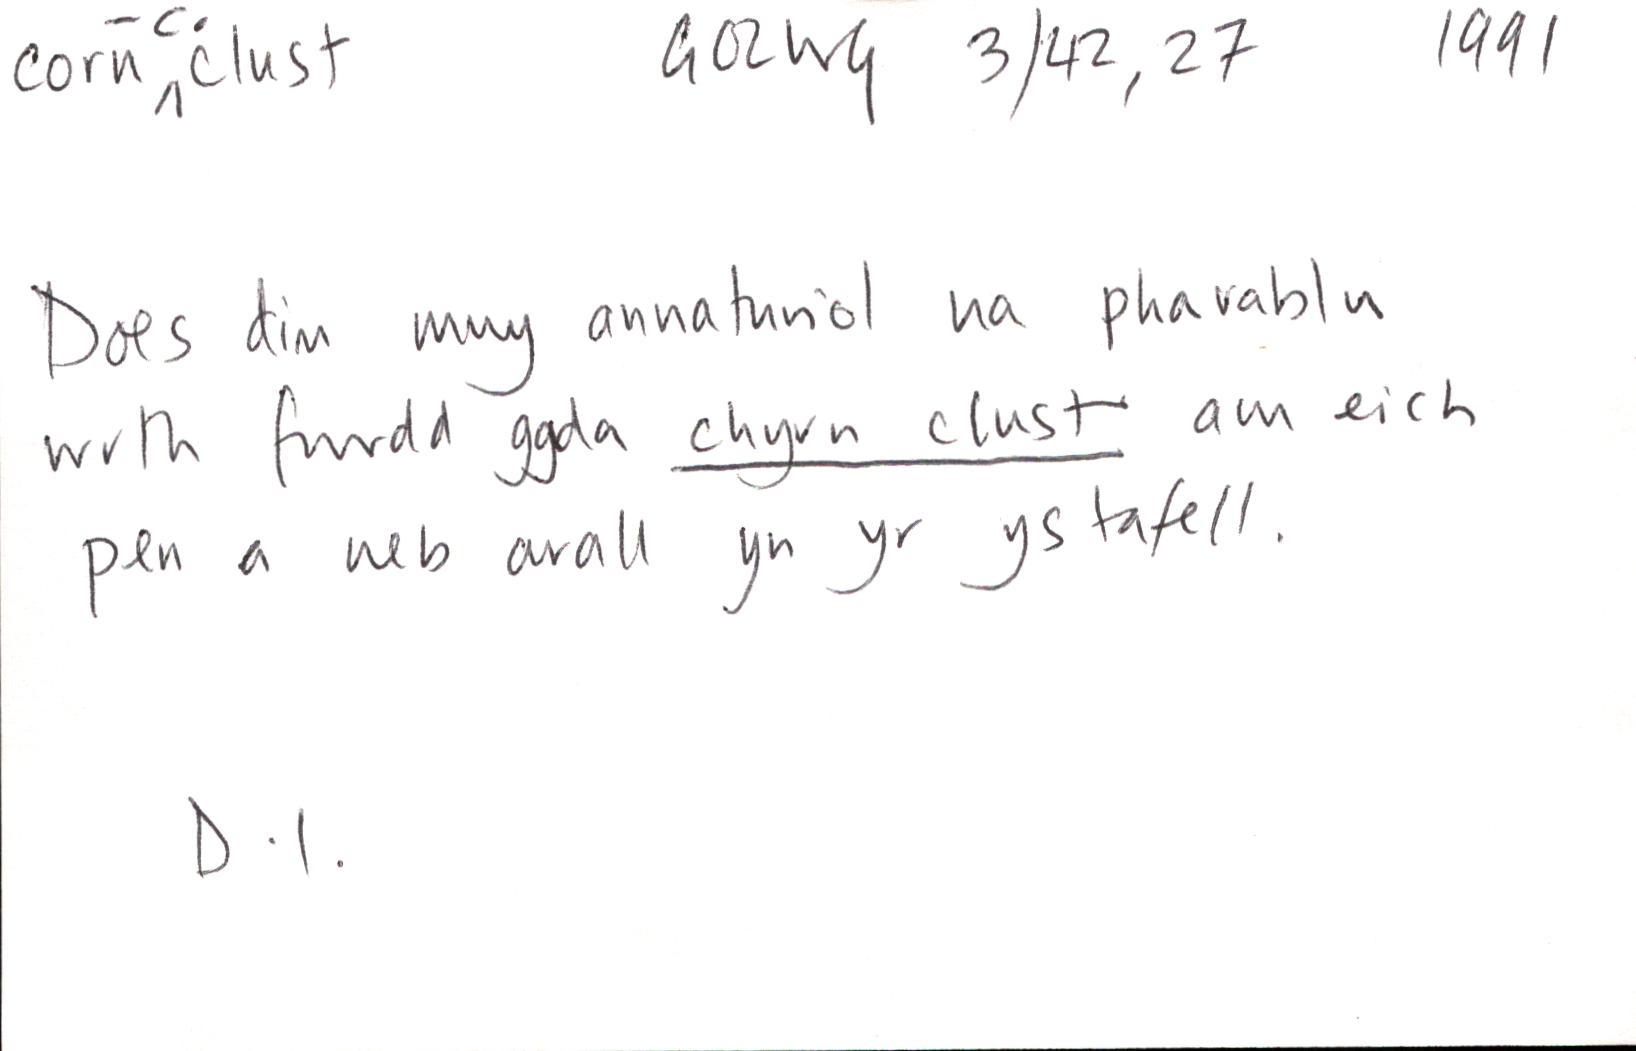 corn -c. clust GOLWG 3/42, 27 1991
Does dim mwy annaturiol na pharablu
wrth fwrdd gyda chyrn clust am eich
pen a neb arall yn yr ystafell.
D.I.